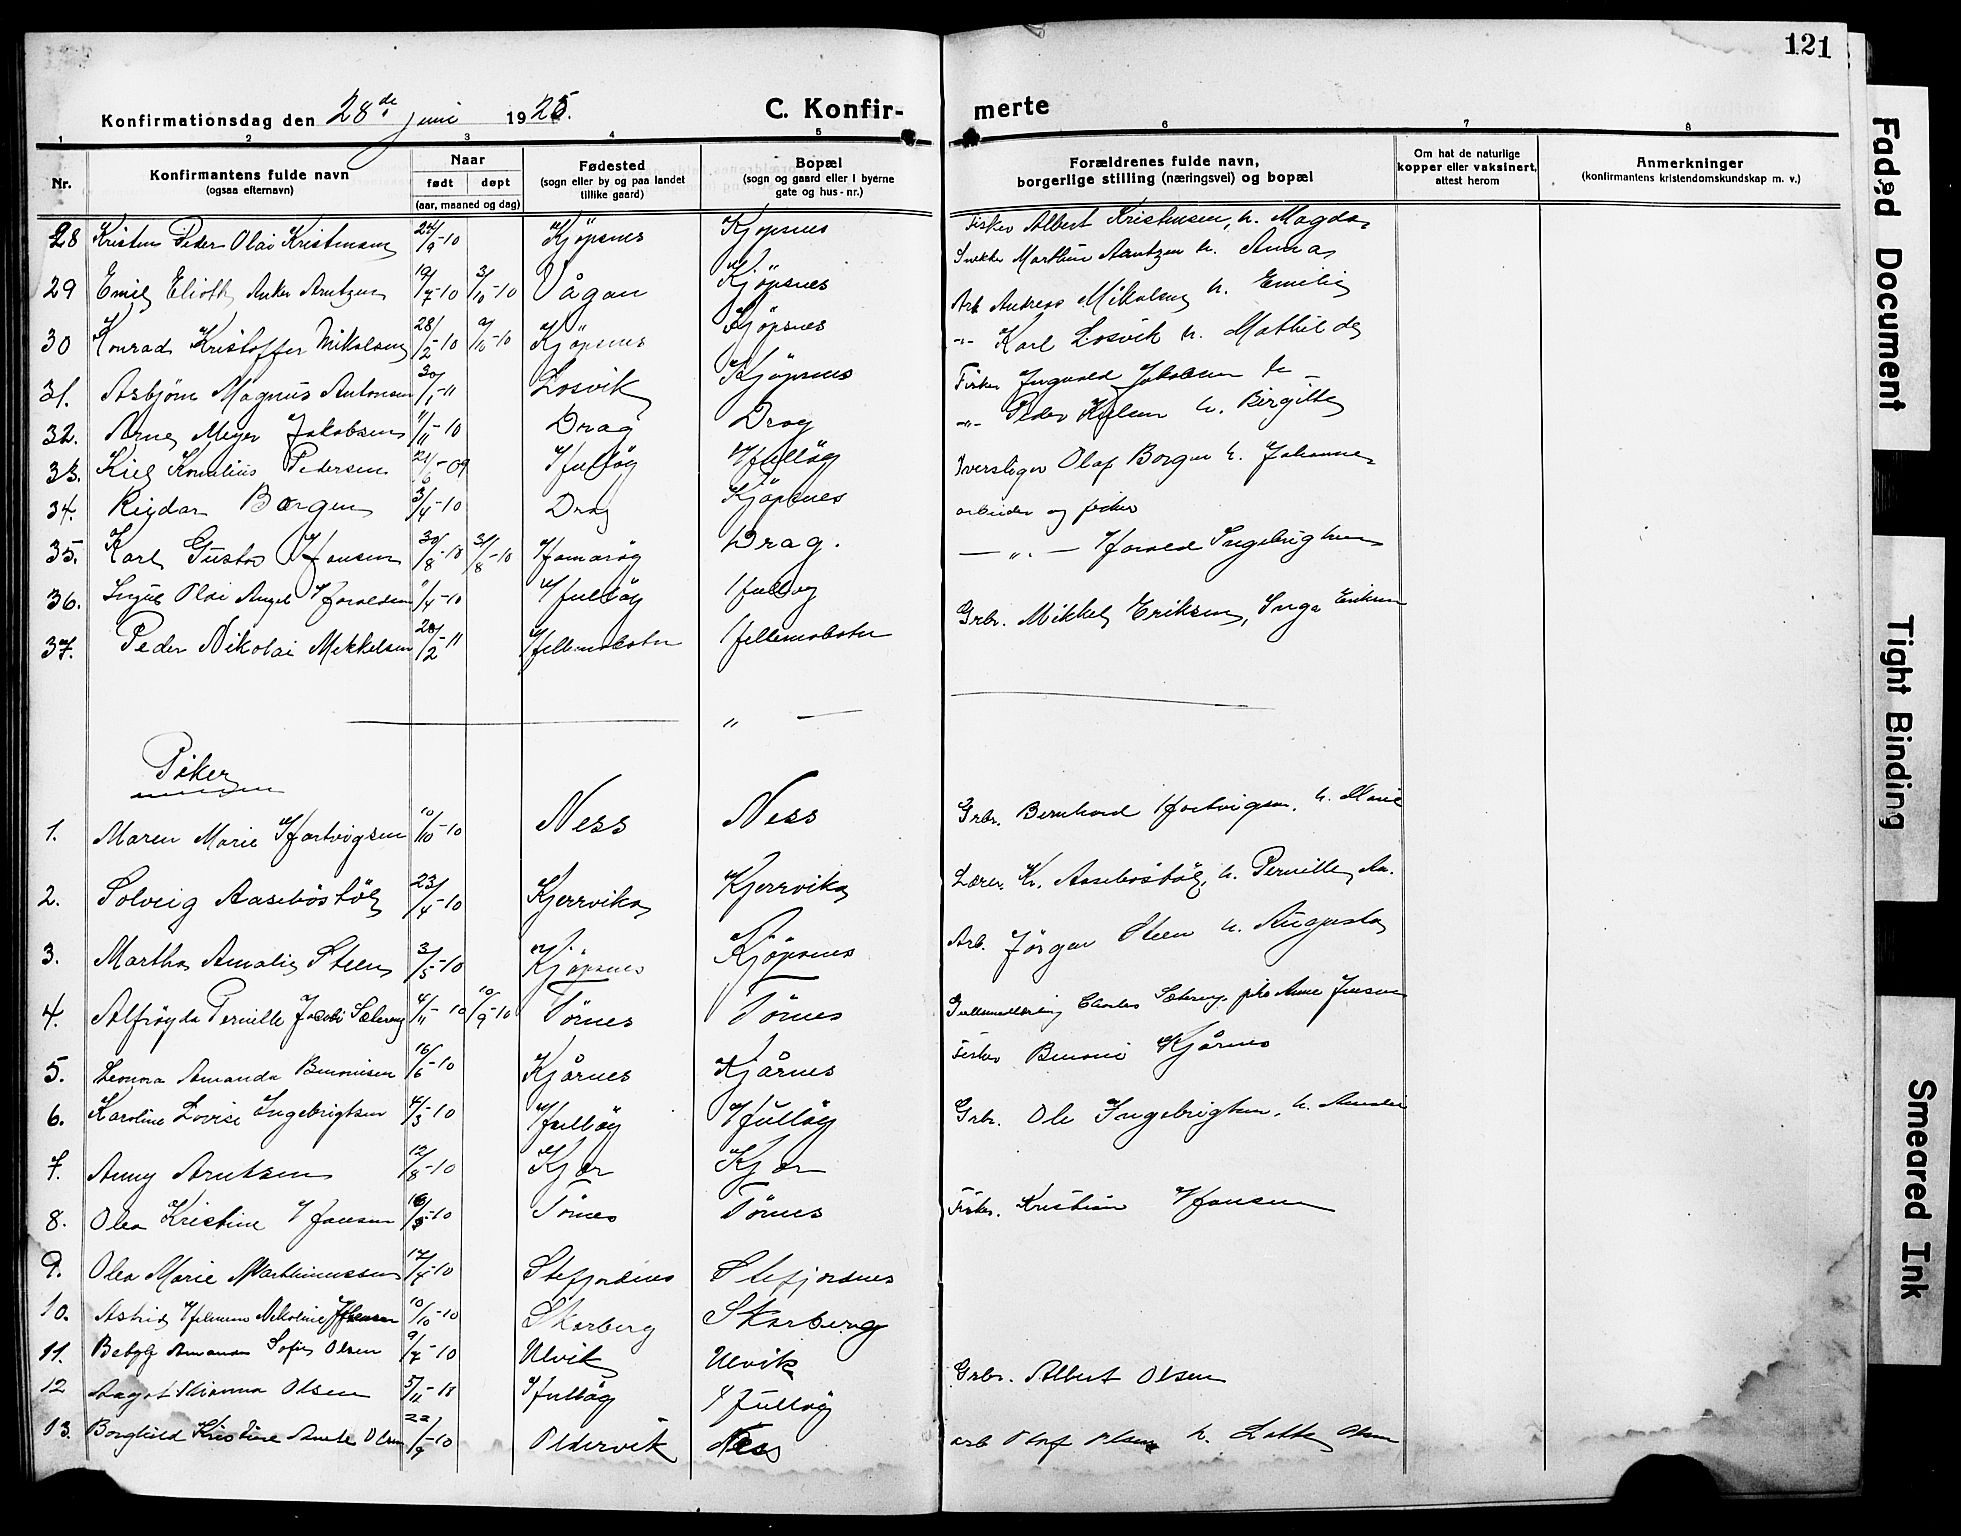 121
Konfirmationsdag den 28de juni 1925. C. Konfir-merte
1 2 3 4 5 6 7 8
Nr. Konfirmantens fulde navn (ogsaa efternavn) Naar født døpt (aar, maaned og dag) Fødested (sogn eller by og paa landet tillike gaard) Bopæl (sogn og gaard eller i byerne gate og hus-nr.) Forældrenes fulde navn, borgerlige stilling (næringsvei) og bopæl Om hat de naturlige kopper eller vaksinert, attest herom Anmerkninger (konfirmantens kristendomskundskap m. v.)
28 Kristen Peder Olai Kristensen 24/9-10 Kjöpsnes Kjöpsnes Fisker Albert Kristensen, h. Magda
29 Emil Elioth Anker Arntzen 19/7-10 3/10-10 Vågan Kjöpsnes Snekker Marthin Arntzen h. Anna
30 Konrad Kristoffer Mikalsen 28/2-10 9/10-10 Kjöpsnes Kjöpsnes Arb. Andreas Mikalsen h. Emilie
31. Asbjörn Magnus Antonsen 30/1-11 Losvik Kjöpsnes -"- Karl Losvik h. Mathilde
32. Arne Meyer Jakobsen 11/11-10 Drag Drag Fisker Ingvald Jakobsen h. —
33. Kiel Kornelius Pedersen 21/6-09 Hulløy Hulløy -"- Peder Kielsen h. Birgitte
34. Reidar Borgen 3/4-10 Drag Kjöpsnes Olaf Borgen h. Johanne
arbeider og fisker
35. Karl Gustav Hansen 30/8-10 31/8-10 Hamarøy Drag.
36. Olai Angel Haraldsen 9/4-10 Hulløy Hulløy — " — Harald Ingebrigtsen
37. Peder Nikolai Mikkelsen 20/2-11 Hellemobotn Hellemobotn Grbr. Mikkel Eriksen, Inga Eriksen
" —
Piker
1. Maren Marie Hartvigsen 10/10-10 Ness Ness Grbr. Bernhard Hartvigsen, h. Marie
2. Solveig Aasebøstøl 23/4-10 Kjerrvika Kjerrvika Lærer. Kr. Aasebøstøl, h. Pernille Aa.
3. Martha Amalie Steen 3/5-10 Kjöpsnes Kjöpsnes Arb. Jørgen Steen h. Augusta
4. Alfrøyda Pernille Jacobi Sætereng 4/11-10 10/9-10 Tørnes Tørnes Charles Sætereng, Anne Jensen
5. Leonora Amanda Benonisen 16/6-10 Kjårnes Kjårnes Fisker Benoni Kjårnes
6. Karoline Lovise Ingebrigtsen 4/3-10 Hulløy Hulløy Grbr. Ole Ingebrigtsen, h. Amalie
7. Anny Arntsen 12/8-10 Kjær Kjær
8. Olea Kristine Hansen Tørnes Tørnes Fisker. Kristian Hansen
9. Olea Marie Marthinussen 17/4-10 Stefjordnes Stefjordnes
10. Astrid Nikoline 10/10-10 Skarberg Skarberg
11. Amanda Sofie Olsen 9/7-10 Ulvik Ulvik
12 Aagot Olsen 5/11-10 Hulløy Hulløy Grbr. Albert Olsen
13. Borghild Kristine Anete Olsen 22/9-10 Oldervik Nes arb Olaf Olsen h. Lotte Olsen
Faded Document
Tight Binding
Smeared Ink